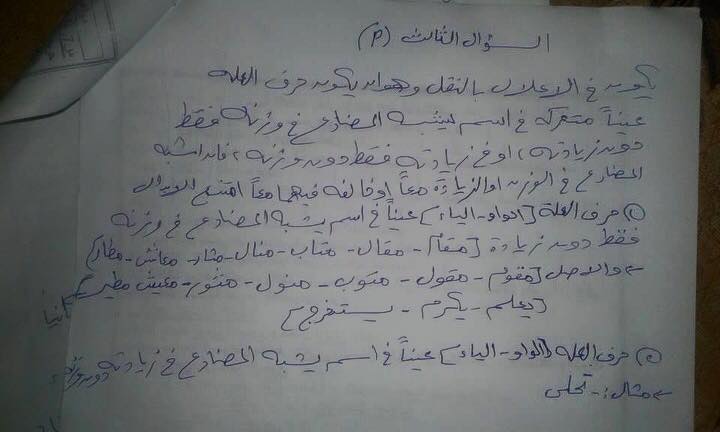 السؤال الثالث (P)
يكون في الاعلال بالنقل وهو ان يكون حرف العلة
عيناً متحركة في اسم يشبه المضارع في وزنه فقط
دون زيادته، او في زيادته فقط دون وزنه، فان اشبه
المضارع في الوزن والزيادة معاً او خالفه فيهما معاً امتنع الابدال
① حرف العلة [الواو - الياء] عيناً في اسم يشبه المضارع في وزنه
فقط دون زيادة [مقام - مقال - متاب - منال - مثار - معاش - مطار]
← والاصل [مقوم - مقول - متوب - منول - مثور - معيش - مطير]
[يعلم - يكرم - يستخرج]
② حرف العلة [الواو - الياء] عيناً في اسم يشبه المضارع في زيادته دون وزنه
← مثال: - تحلى